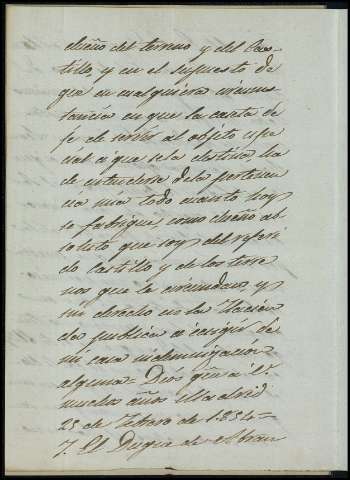 dueño del terreno y del Cas-
tillo, y en el supuesto de
que en cualquiera circuns-
tancia en que la casta de-
je de servir al objeto espe-
cial a que se la destina, ha
de entenderse de la pertenen-
cia mia todo cuanto hoy
se fabrique, como dueño ab-
soluto que soy del referi-
do Castillo y de los terre-
nos que le circundan, y
sin derecho en la Hacien-
da publica a exigir de
mi casa indemnizacion
alguna= Dios gûe a V.
muchos años Madrid
23 de Febrero de 1854=
El Duque de Abran